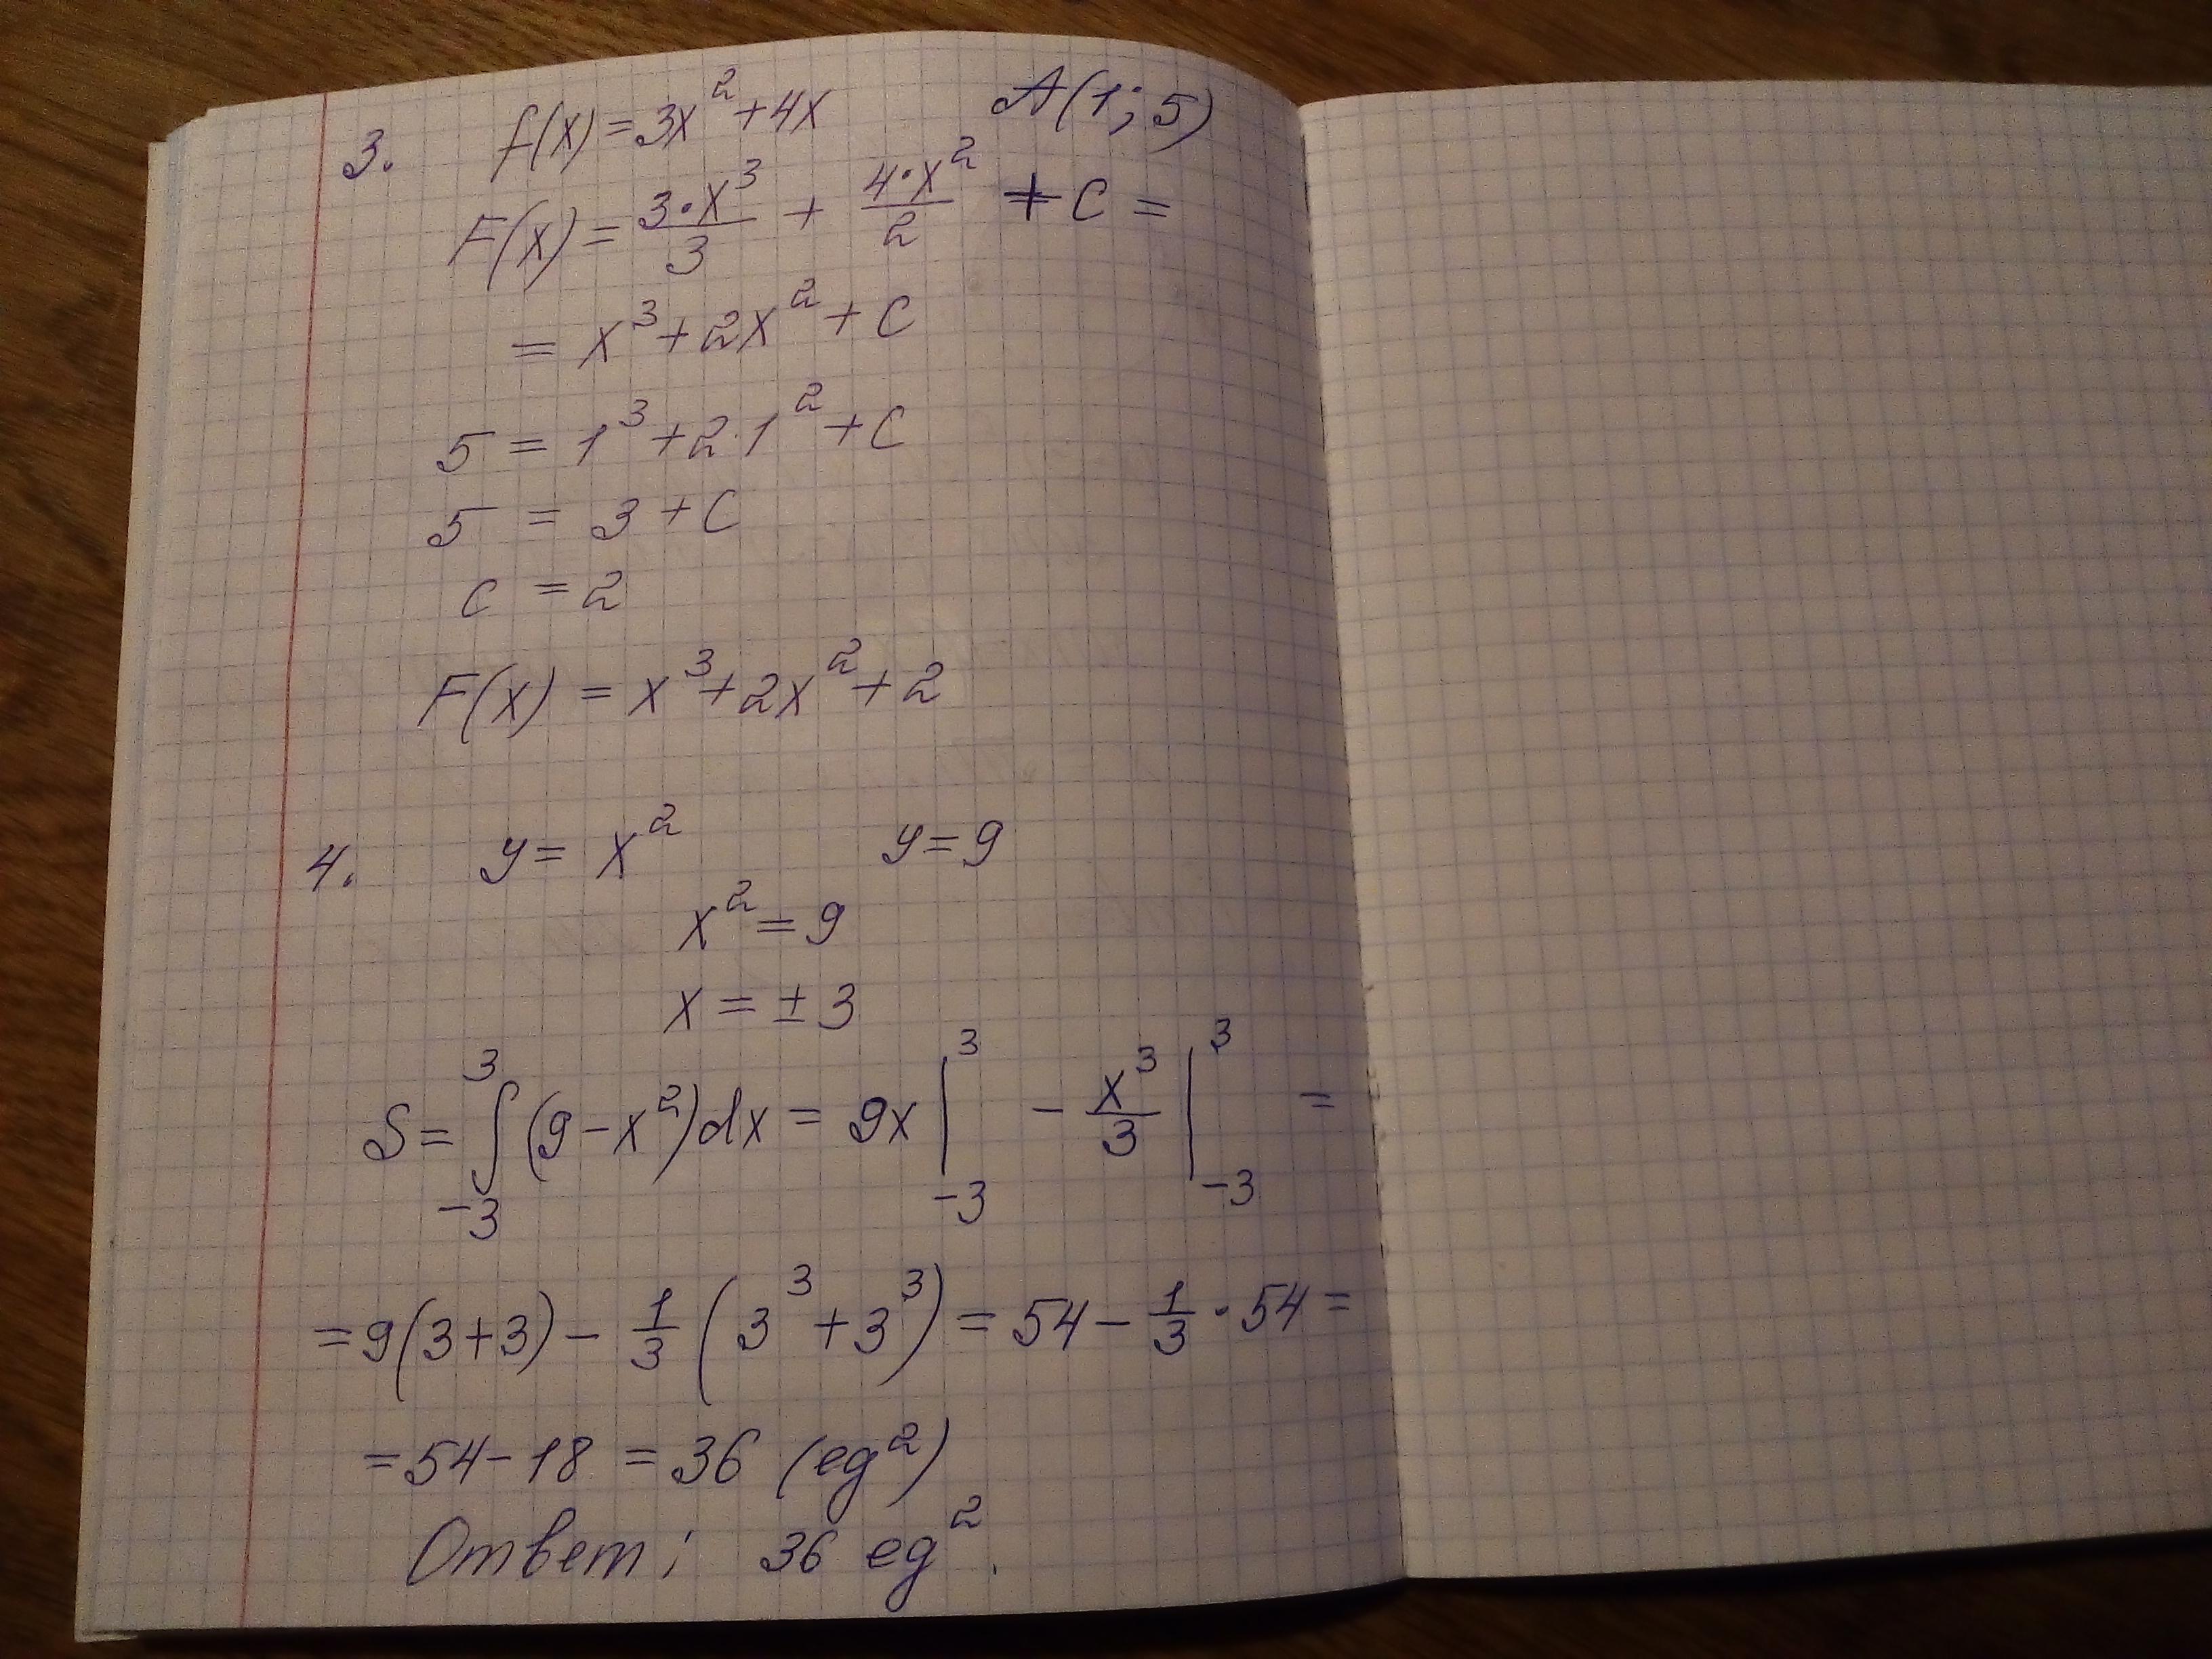 3. f(x)=3x²+4x A(1;5)
F(x)= 3·x³/3 + 4·x²/2 + C =
= x³+2x²+C
5 = 1³+2·1²+C
5 = 3+C
c = 2
F(x) = x³+2x²+2
4. y= x² y=9
x²=9
x=±3
S= ∫₋₃³ (9-x²)dx = 9x|₋₃³ - x³/3|₋₃³ =
=9(3+3)- 1/3 (3³+3³)=54- 1/3·54=
=54-18 =36 (ед²)
Ответ: 36 ед².